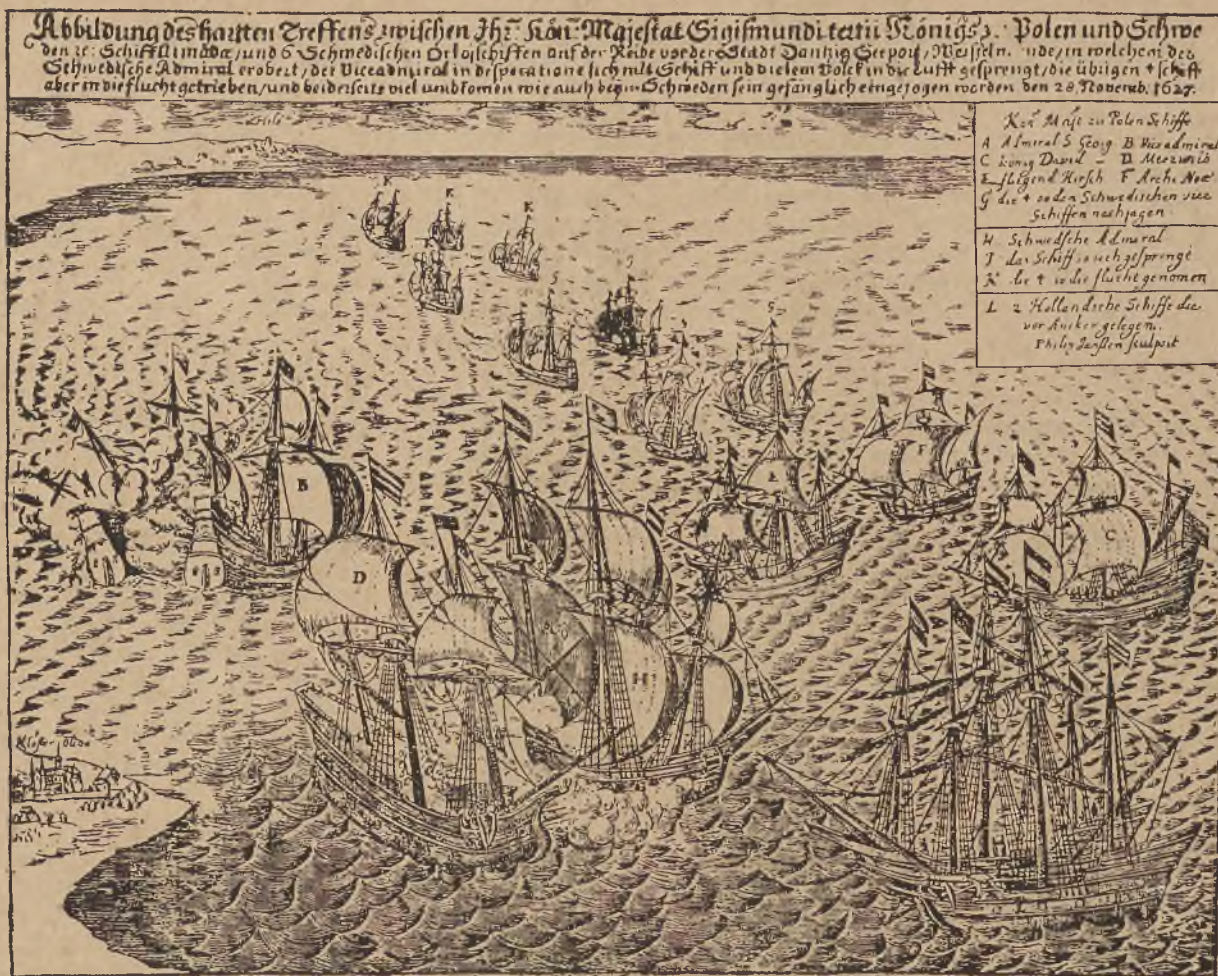 Abbildung des hartten Treffens zwischen Ihr: Kön: Majestat Sigismundi tertii Königs z: Polen und Schwe
den Schiff und 6 Schwedischen Orlojschiften auf der Reide vor der Stadt Dantzig Seeport, in welchem der
Schwedische Admiral erobert, der Viceadmiral in desperatione sich mit Schiff und vielem Volck in die Lufft gesprengt, die übrigen 4 schiff
aber in die flucht getrieben, und beiderseits viel umbkomen wie auch beÿm Schweden sein gefänglich eingezogen worden den 28. Novemb. 1627.
Kön Majt zu Polen Schiffe
A Admiral S Georg B Viceadmiral
C König David D Meerweib
E fliegend Hirsch F Arche Noe
G die 4 so den Schwedischen vier
Schiffen nachjagen
H Schwedsche Admiral
J das Schiff so sich gesprengt
K die 4 so die flucht genomen
L 2 Hollandsche Schiffe die
vor Ancker gelegen.
Philip Janssen sculpsit
K
K
K
G
G
B
F
E
C
D
H
Kloster